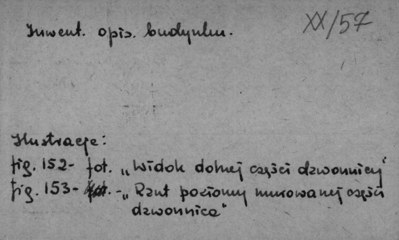 Inwent. opis. budynku.
XX/57
Ilustracje:
fig. 152- fot. „Widok dolnej części dzwonnicy"
fig. 153- - „Rzut poziomy murowanej części
dzwonnica"